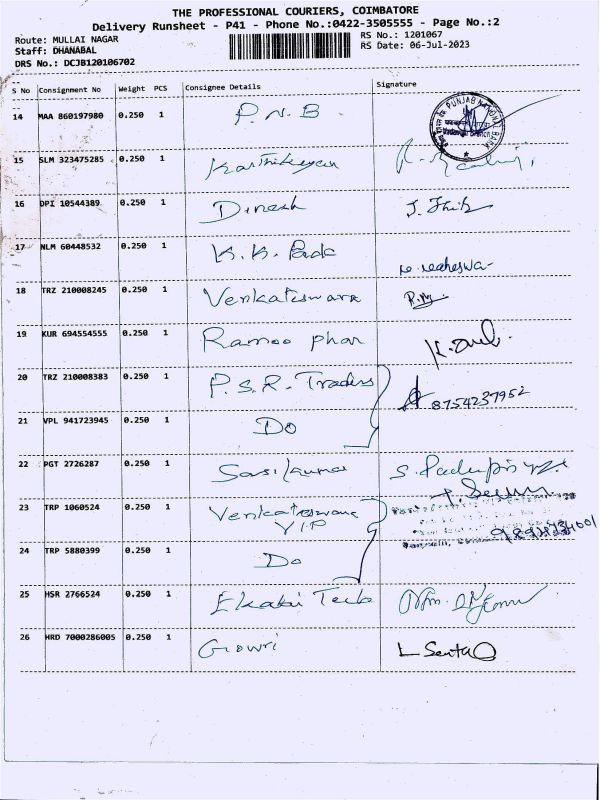 THE PROFESSIONAL COURIERS, COIMBATORE
Delivery Runsheet - P41 - Phone No.:0422-3505555 - Page No.:2
Route: MULLAI NAGAR
Staff: DHANABAL
DRS No.: DCJB120106702
RS No.: 1201067
RS Date: 06-Jul-2023
S No Consignment No Weight PCS Consignee Details Signature
14 MAA 860197980 0.250 1 P.N.B
15 SLM 323475285 0.250 1 Karthikeyan
16 DPI 10544389 0.250 1 Dinesh
17 NLM 60448532 0.250 1 K.K. Pade
18 TRZ 210008245 0.250 1 Venkateswara
19 KUR 694554555 0.250 1 Ramoo phar
20 TRZ 210008383 0.250 1 P.S.R. Traders 8754237952
21 VPL 941723945 0.250 1 Do
22 PGT 2726287 0.250 1 Sasikumar
23 TRP 1060524 0.250 1 Venkateswara
V.I.P
24 TRP 5880399 0.250 1 Do
25 HSR 2766524 0.250 1
26 HRD 7000286005 0.250 1 Gowri